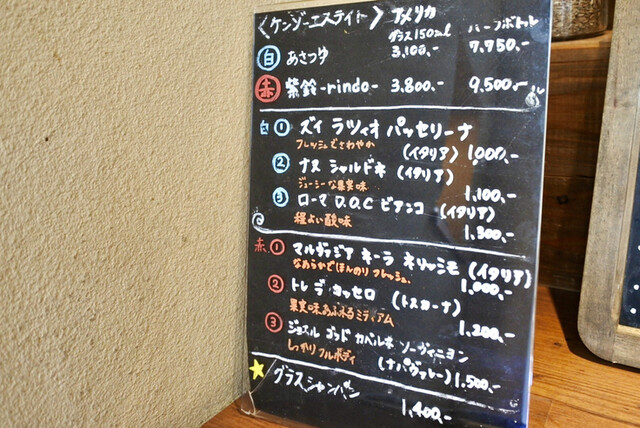 〈ケンゾーエステイト〉 アメリカ
グラス150ml ハーフボトル
白 あさつゆ 3,100.- 7,750.-
赤 紫鈴-rindo- 3,800.- 9,500.-
白 ① ズイ ラツィオ パッセリーナ
フレッシュでさわやか (イタリア) 1,000.-
② ナヌ シャルドネ (イタリア)
ジューシーな果実味 1,100.-
③ ローマ D.O.C ビアンコ (イタリア)
程よい酸味 1,300.-
赤 ① マルヴァジア ネーラ ネリッシモ (イタリア)
なめらかでほんのり フレッシュ. 1,000.-
② トレ デ ヨッセロ (トスカーナ)
果実味あふれるミディアム 1,200.-
③ ジョエル ゴッド カベルネ ソーヴィニヨン
しっかり フルボディ (ナパヴァレー) 1,500.-
グラスシャンパン
1,400.-